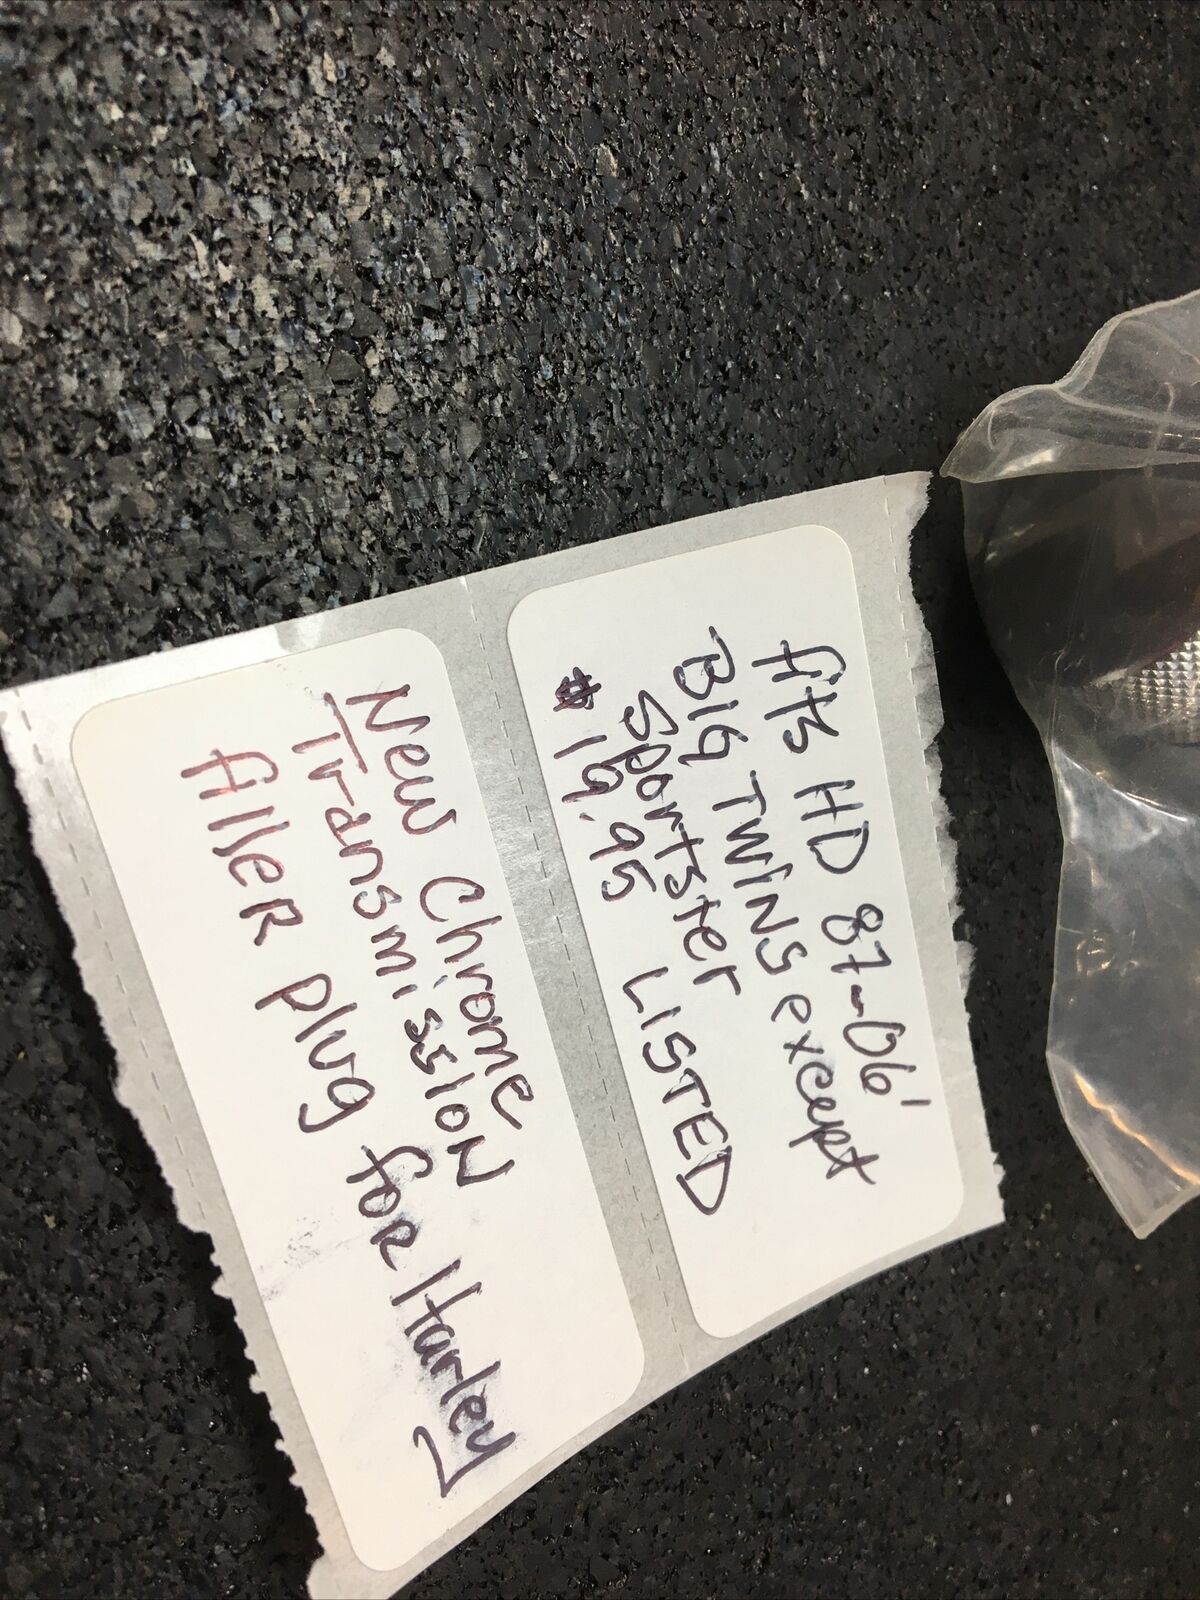 fits HD 87-06'
BIG TWINS except
Sportster
$19.95 LISTED
New Chrome
Transmission
filler plug for Harley